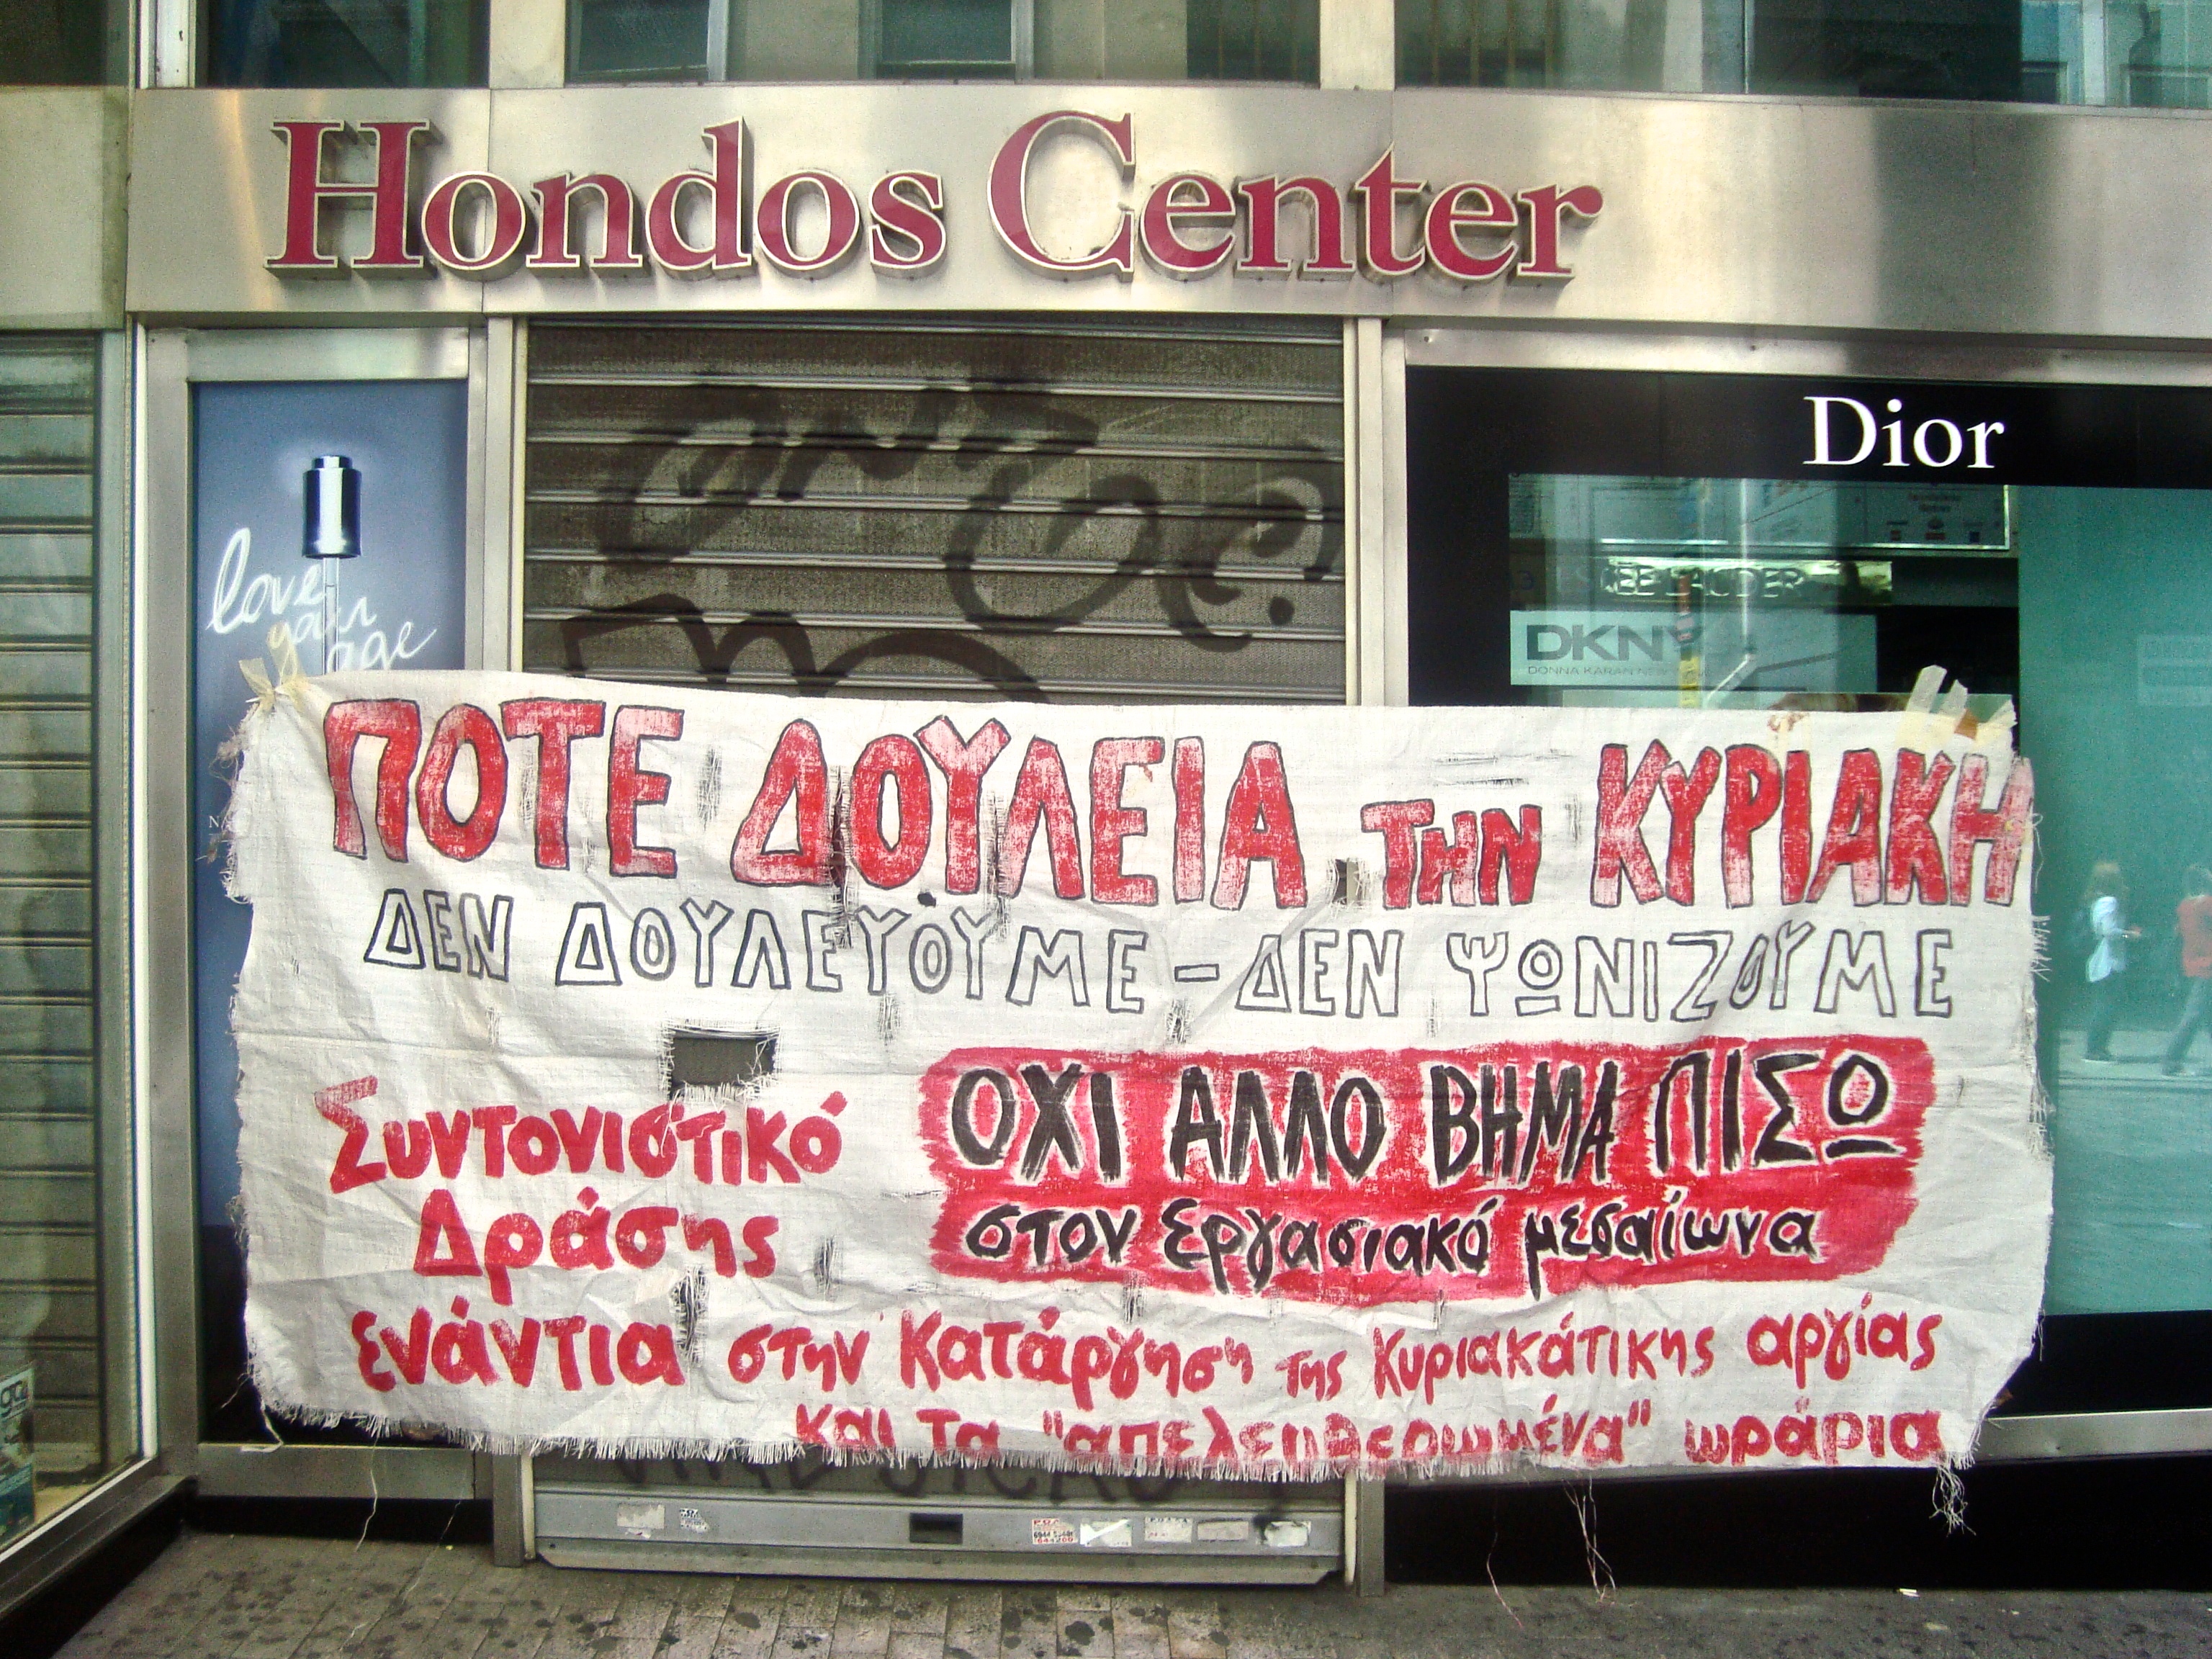 Hondos Center
Dior
love
your
age
ESTEE LAUDER
DKNY
DONNA KARAN NEW
ΠΟΤΕ ΔΟΥΛΕΙΑ ΤΗΝ ΚΥΡΙΑΚΗ
ΔΕΝ ΔΟΥΛΕΥΟΥΜΕ - ΔΕΝ ΨΩΝΙΖΟΥΜΕ
ΟΧΙ ΑΛΛΟ ΒΗΜΑ ΠΙΣΩ
στον εργασιακό μεσαίωνα
Συντονιστικό
Δράσης
ενάντια στην κατάργηση της κυριακάτικης αργίας
και τα "απελευθερωμένα" ωράρια